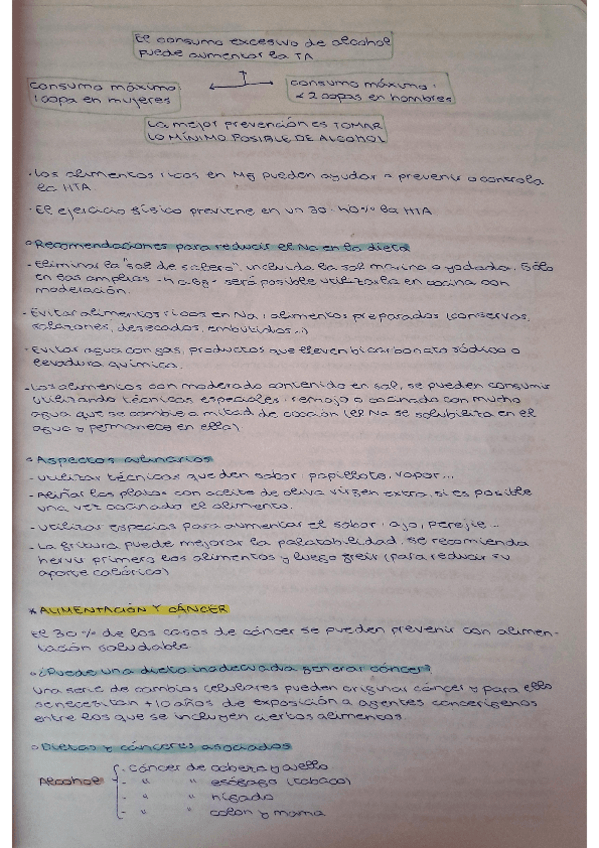 El consumo excesivo de alcohol
puede aumentar la TA
consumo máximo:
1 copa en mujeres
consumo máximo:
< 2 copas en hombres
La mejor prevención es TOMAR
LO MÍNIMO POSIBLE DE ALCOHOL
· Los alimentos ricos en Mg pueden ayudar a prevenir o controla
la HTA
· El ejercicio físico previene en un 30-40% la HTA
° Recomendaciones para reducir el Na en la dieta
- Eliminar la "sal de salero", incluida la sal marina o yodada. Sólo
en las amplias será posible utilizarla en cocina con
moderación.
- Evitar alimentos ricos en Na: alimentos preparados (conservas,
salazones, desecados, embutidos...)
- Evitar agua con gas, productos que lleven bicarbonato sódico o
levadura química.
- Los alimentos con moderado contenido en sal, se pueden consumir
utilizando técnicas especiales: remojo o cocinado con mucho
agua que se cambie a mitad de cocción (el Na se solubiliza en el
agua y permanece en ella)
° Aspectos culinarios
- Utilizar técnicas que den sabor: papillote, vapor...
- Aliñar los platos con aceite de oliva virgen extra, si es posible
una vez cocinado el alimento.
- Utilizar especias para aumentar el sabor: ajo, perejil...
- La fritura puede mejorar la palatabilidad, se recomienda
hervir primero los alimentos y luego freir (para reducir su
aporte calórico)
* ALIMENTACIÓN Y CÁNCER
El 30% de los casos de cáncer se pueden prevenir con alimen-
tación saludable
° ¿Puede una dieta inadecuada generar cáncer?
Una serie de cambios celulares pueden originar cáncer y para ello
se necesitan +10 años de exposición a agentes cancerígenos
entre los que se incluyen ciertos alimentos.
° Dietas y cánceres asociados
Alcohol { - cáncer de cabeza y cuello
- " " esófago (tabaco)
- " " hígado
- " " colon y mama